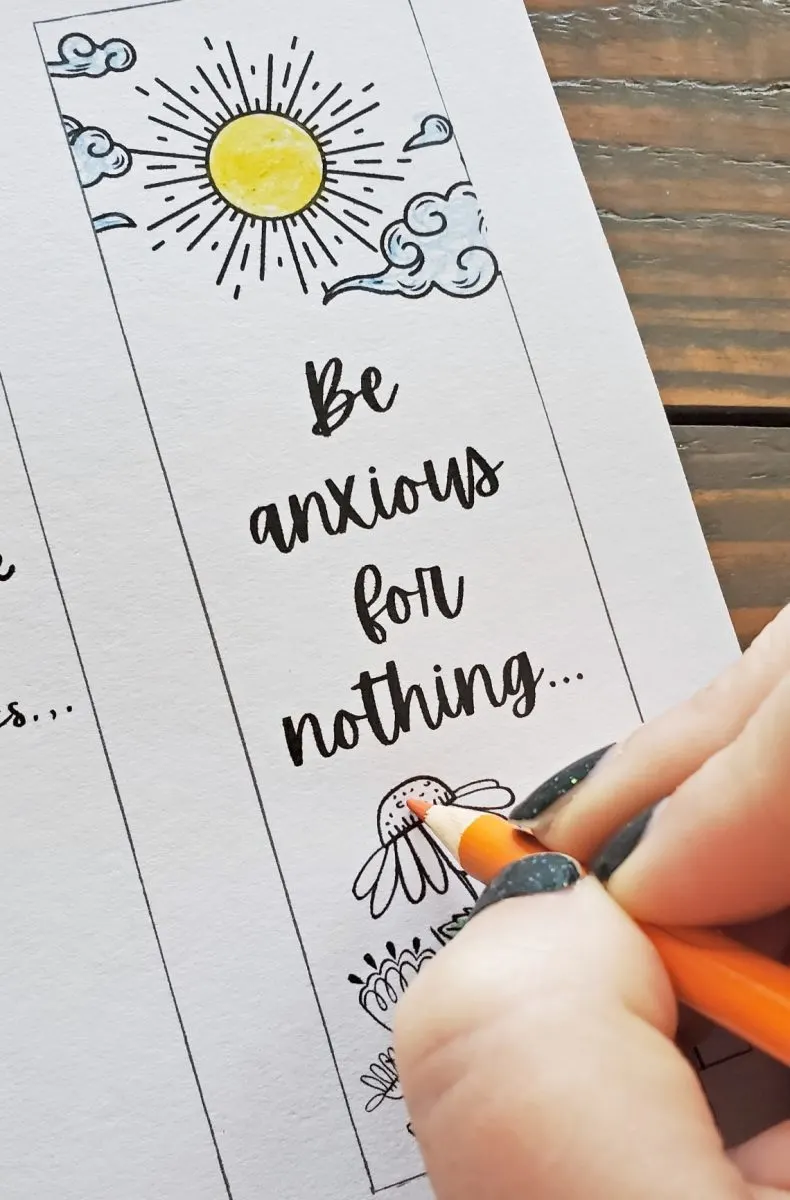 Be
anxious
for
nothing...